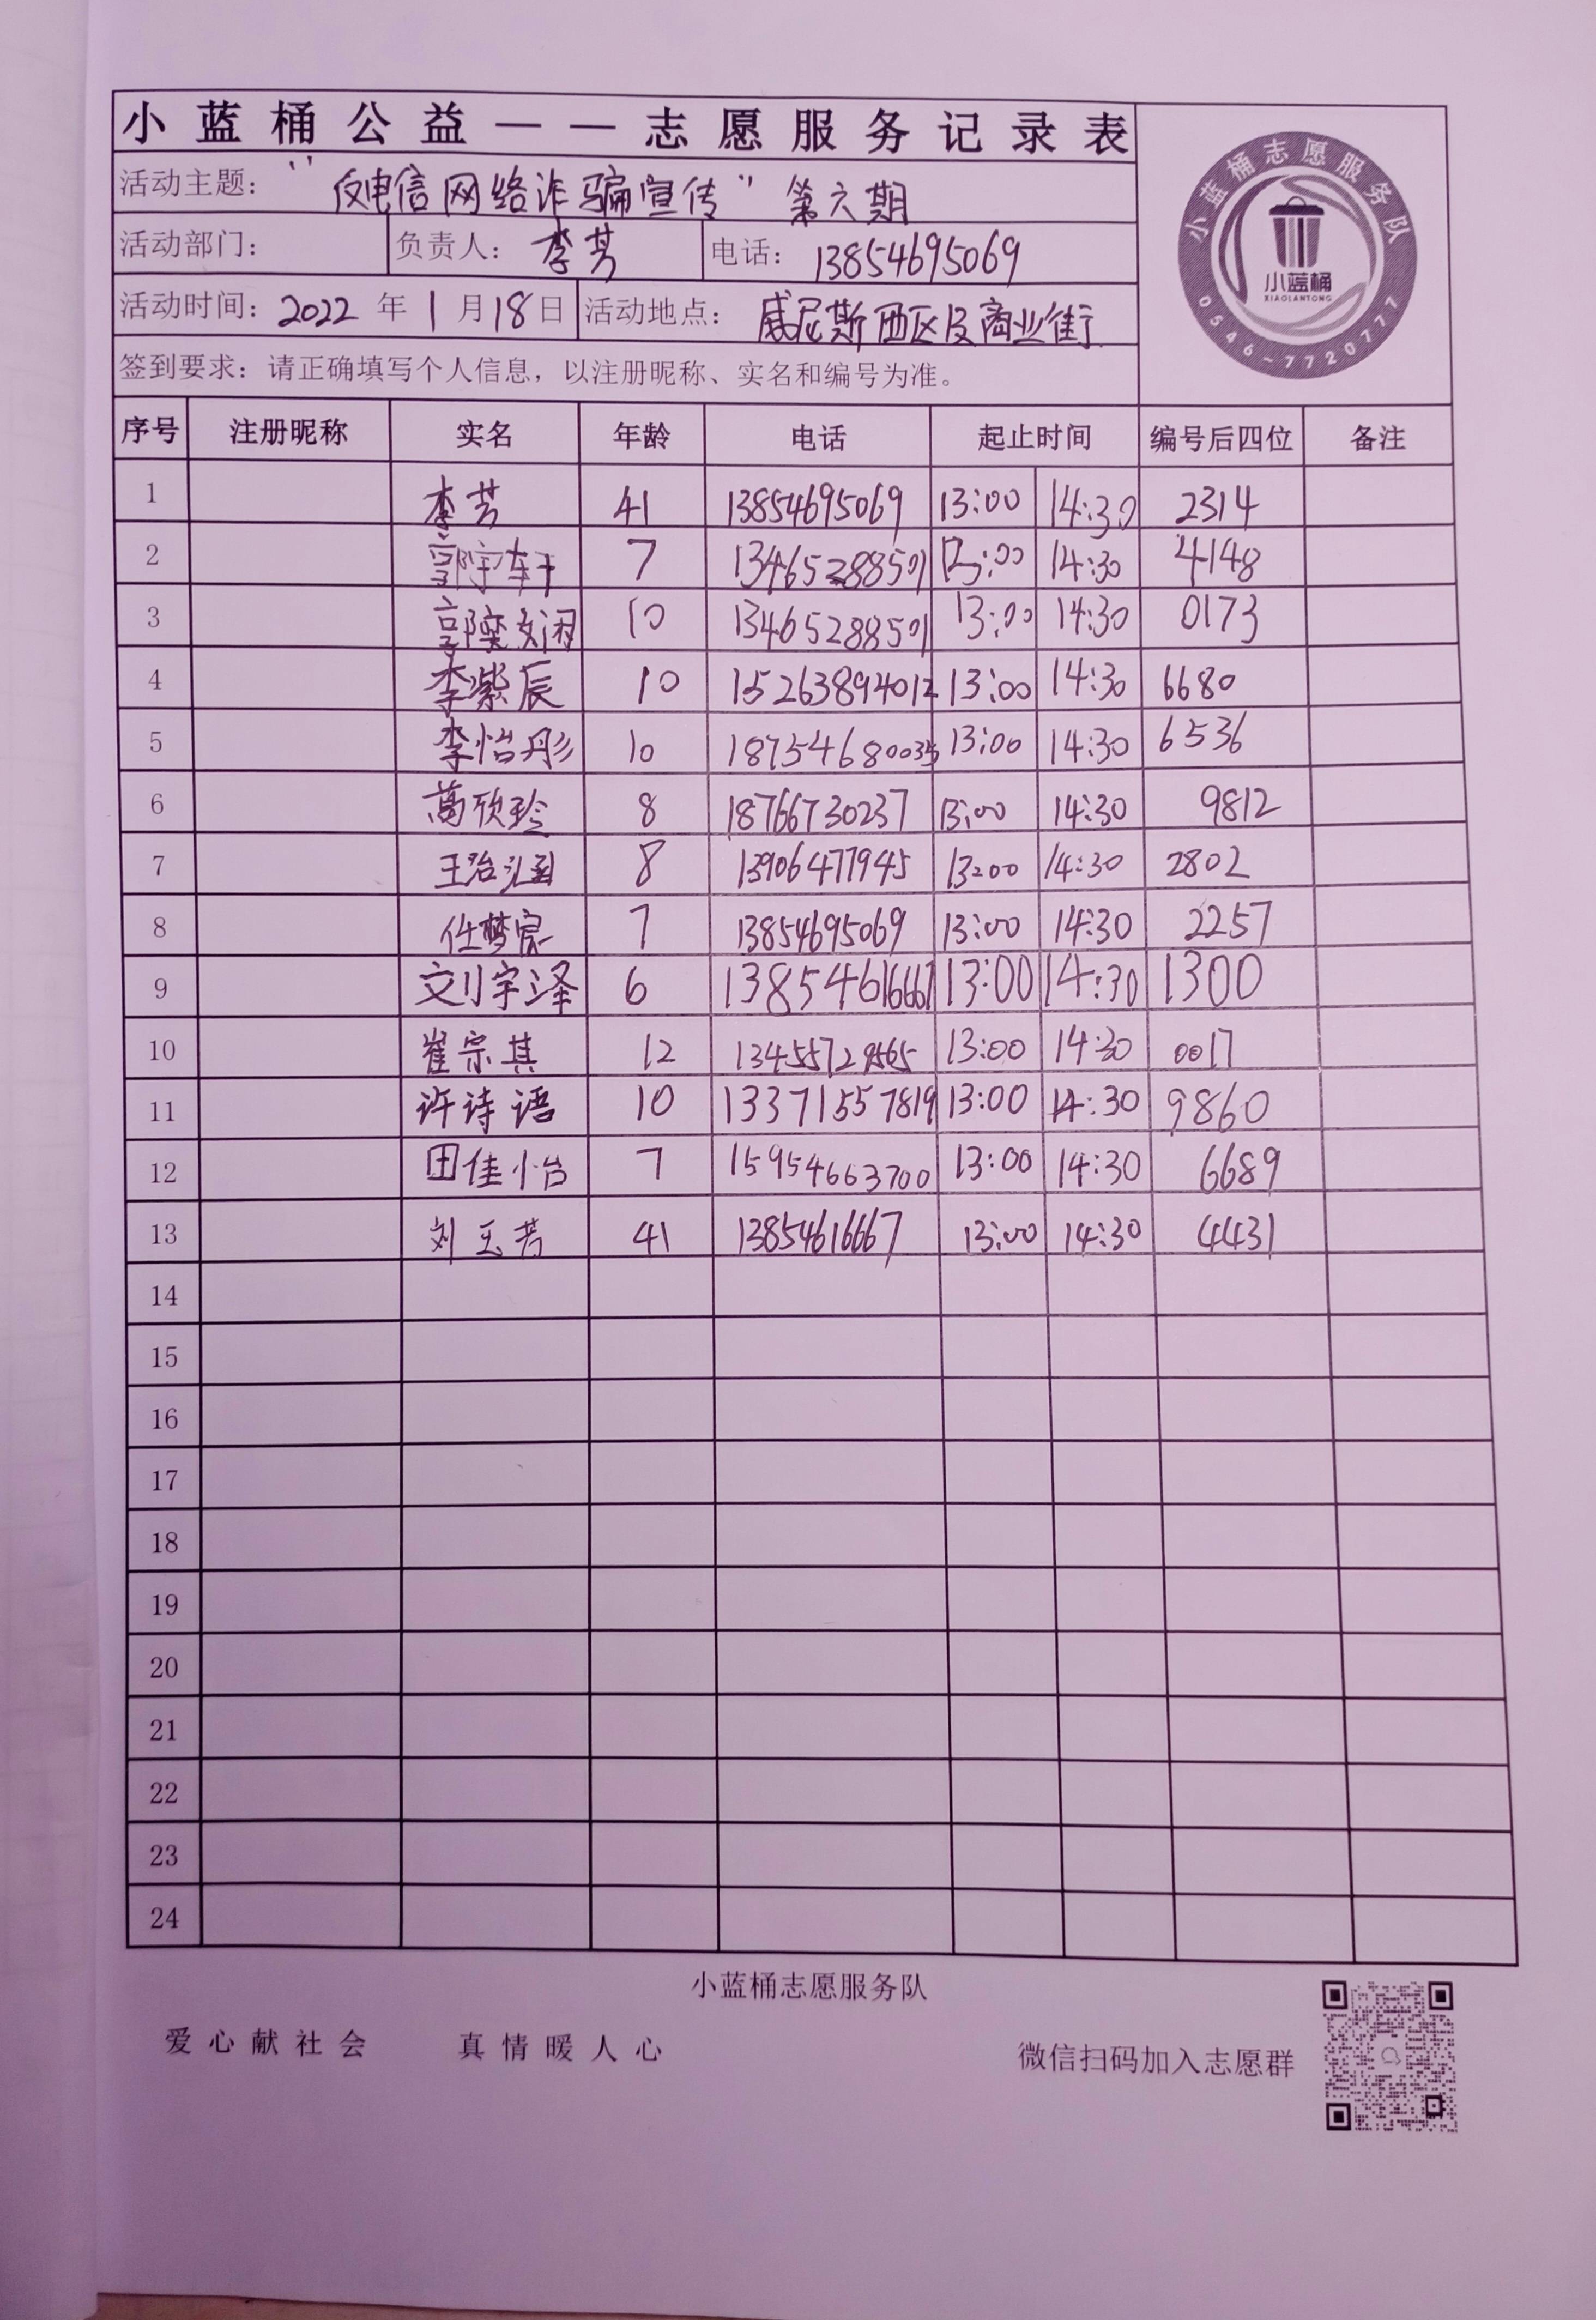 小蓝桶公益——志愿服务记录表
活动主题："反电信网络诈骗宣传"第六期
活动部门： 负责人：李芳 电话：13854695069
活动时间：2022年1月18日 活动地点：威尼斯西区及商业街
签到要求：请正确填写个人信息，以注册昵称、实名和编号为准。
小蓝桶志愿服务队
小蓝桶
XIAOLANTONG
0546-7720777
序号 注册昵称 实名 年龄 电话 起止时间 编号后四位 备注
1 李芳 41 13854695069 13:00 14:30 2314
2 郭宇轩 7 13465288501 13:00 14:30 4148
3 郭奕娴 10 13465288501 13:00 14:30 0173
4 李紫辰 10 15263894012 13:00 14:30 6680
5 李怡彤 10 18754680035 13:00 14:30 6536
6 葛欣玲 8 18766730237 13:00 14:30 9812
7 王治涵 8 13906477945 13:00 14:30 2802
8 任梦宸 7 13854695069 13:00 14:30 2257
9 刘宇泽 6 13854616667 13:00 14:30 1300
10 崔宗其 12 13:00 14:30 0017
11 许诗语 10 13371557819 13:00 14:30 9860
12 田佳怡 7 15954663700 13:00 14:30 6689
13 刘玉芳 41 13854616667 13:00 14:30 4431
14
15
16
17
18
19
20
21
22
23
24
小蓝桶志愿服务队
爱心献社会 真情暖人心 微信扫码加入志愿群